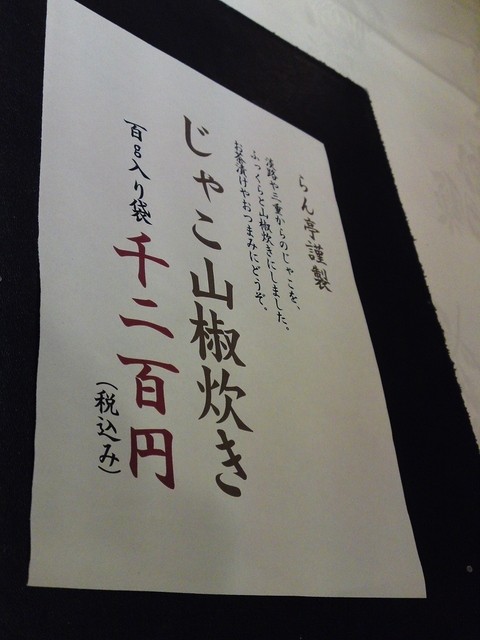 らん亭謹製
淡路や三重からのじゃこを、
ふっくらと山椒炊きにしました。
お茶漬けやおつまみにどうぞ。
じゃこ山椒炊き
百g入り袋 千二百円
(税込み)